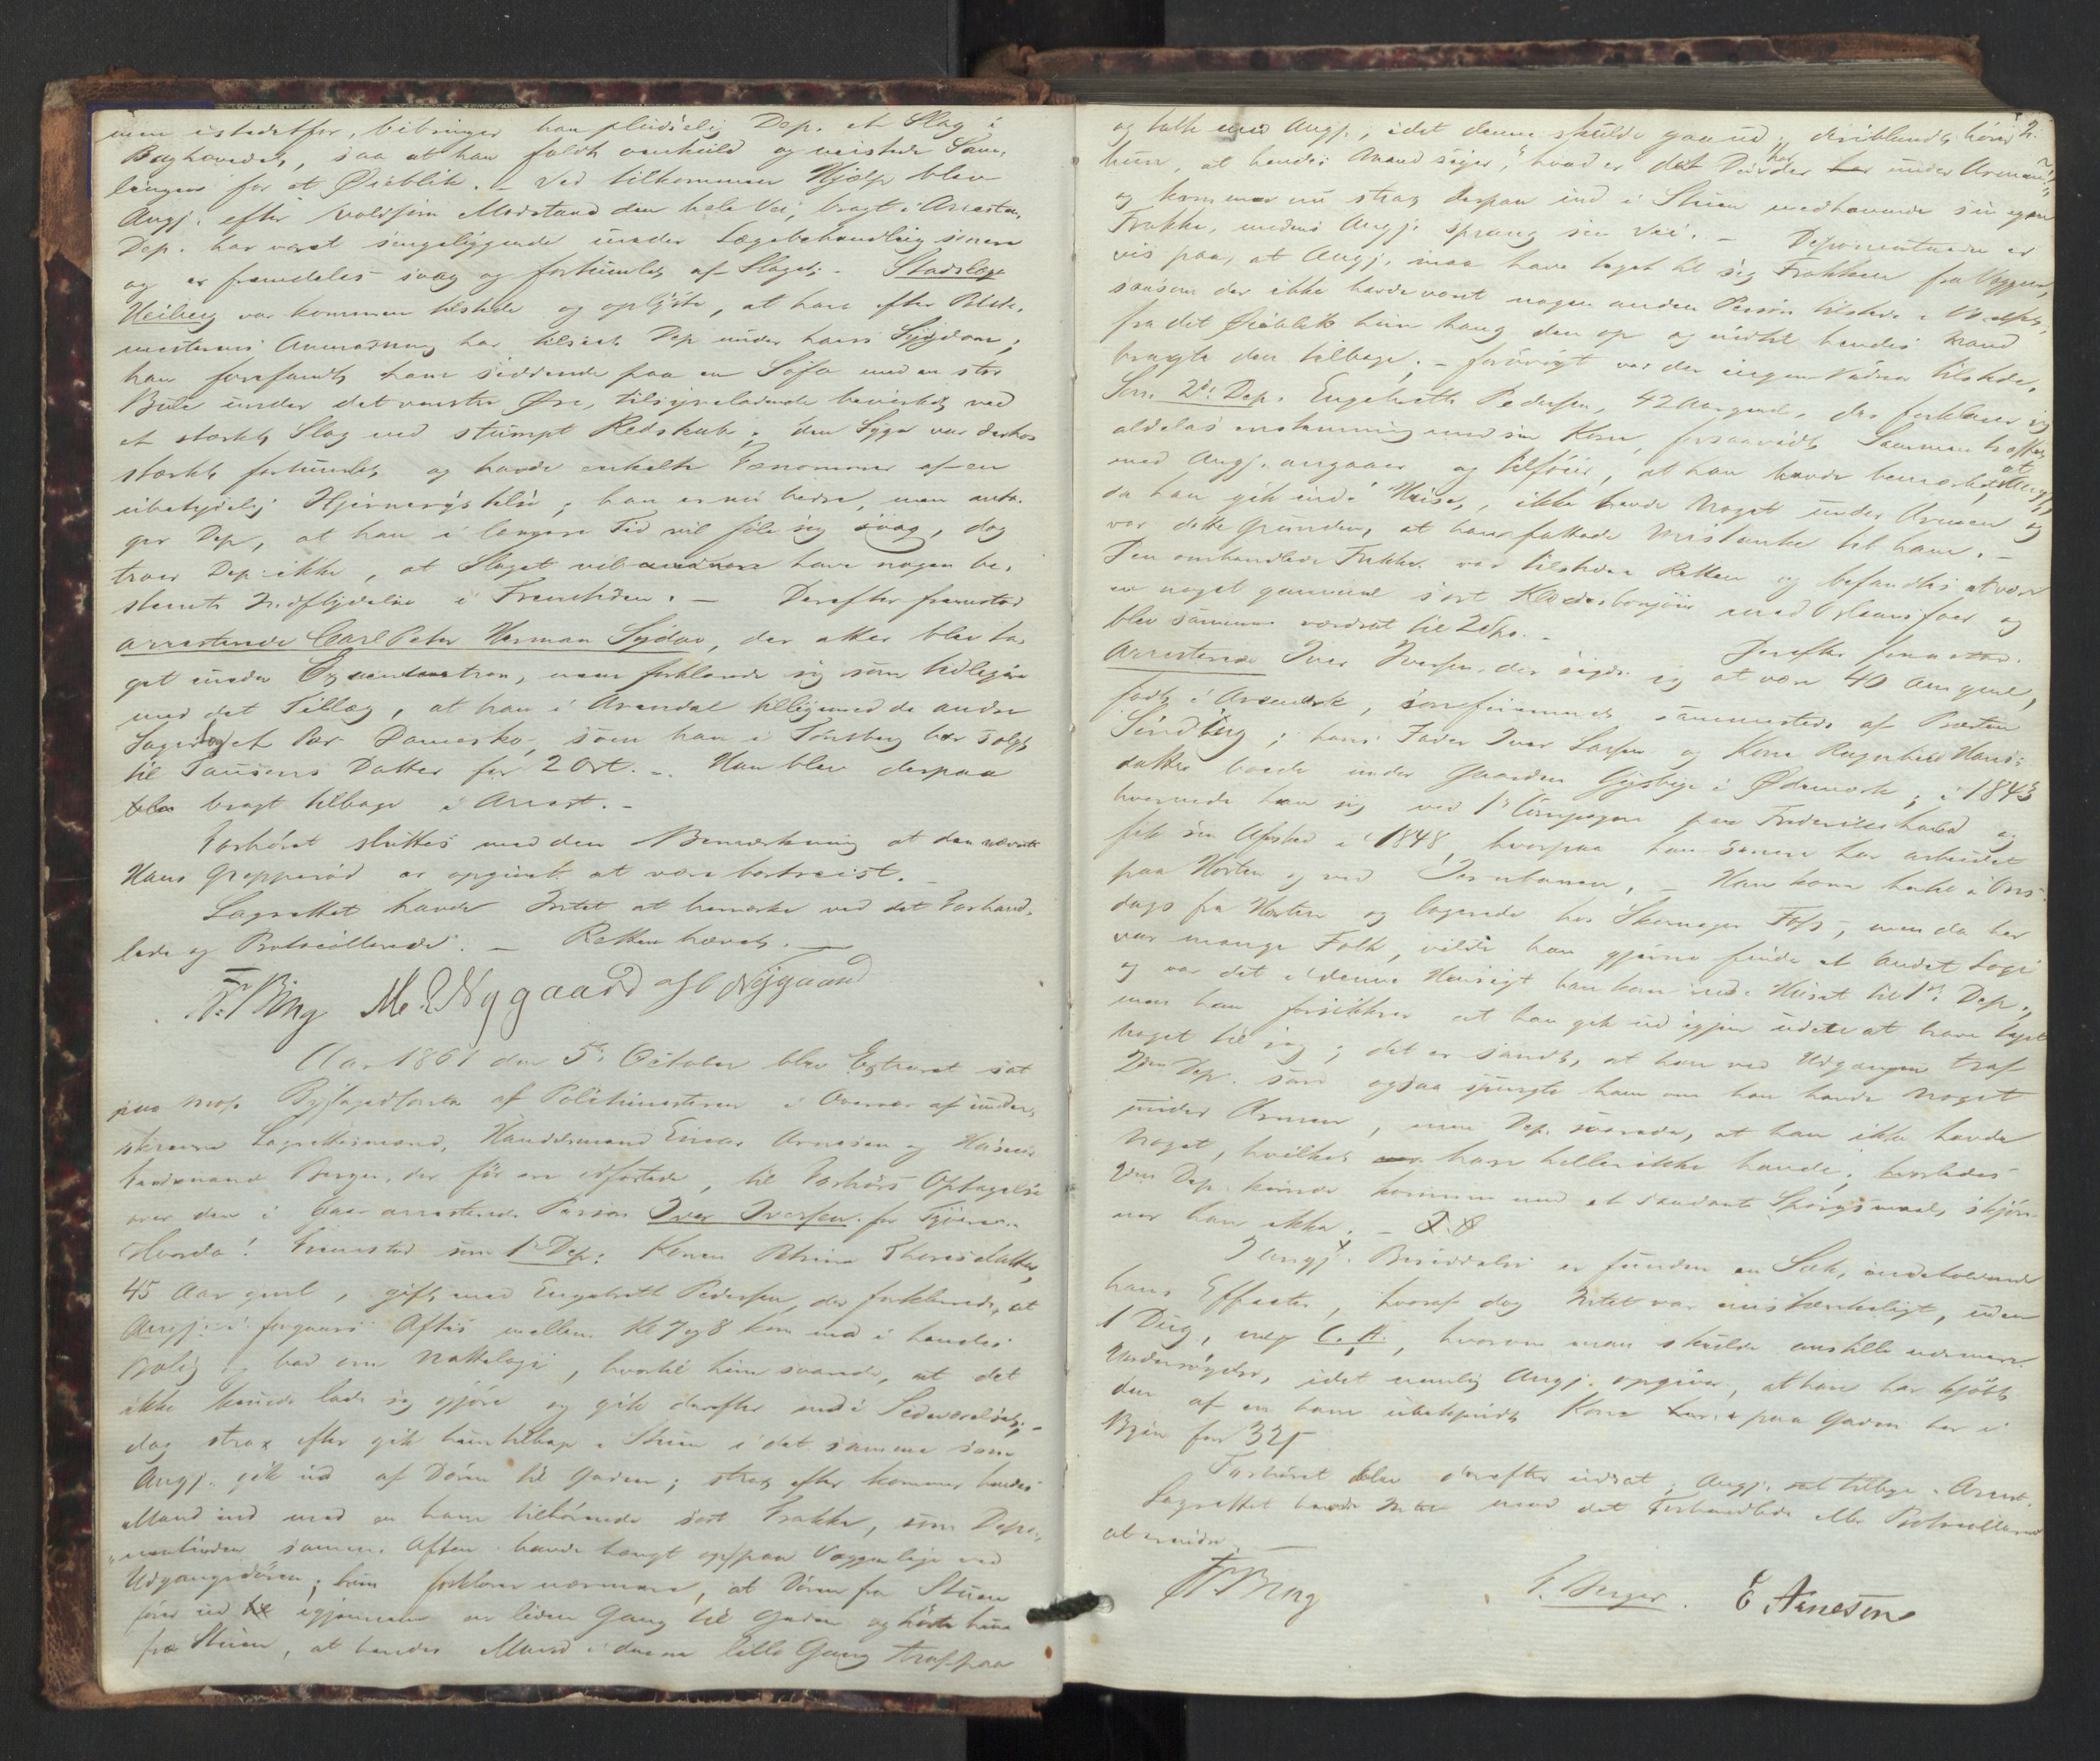 men istedetfor, bibringer han pludselig Dep. et Slag i
Baghovedet, saa at han faldt omkuld og mistede Sam-
lingen for et Øieblik. – Ved tilkommen Hjælp blev
Angj. efter voldsom Modstand den hele Vei, bragt i Arresten.
Dep. har været sengeliggende under Lægebehandling senere
og er fremdeles svag og fortumlet af Slaget. – Stadslæge
Heiberg var kommen tilstede og oplyste, at han efter Politi-
mesterens Anmodning har tilseet Dep under hans Sygdom;
han forefandt ham siddende paa en Sofa med en stor
Bule under det venstre Øre, tilsyneladende bevirket ved
et stærkt Slag med stumpt Redskab; den Syge var derhos
stærkt fortumlet og havde enkelte Fænomener af en
ubetydelig Hjernerystelse; han er nu bedre, men anta-
ger Dep, at han i længere Tid vil føle sig svag, dog
troer Dep ikke, at Slaget vil have nogen be-
stemt Indflydelse i Fremtiden. – Derefter fremstod
arrestende Carl Peter Herman Sydow, der atter blev ta-
get under Examination, men forklarede sig som tidligere
med det Tillæg, at han i Arendal tilligemed de andre
Sager tog et Par Damesko, som han i Tønsberg har solgt
til Datter for 2 Ort. – Han blev derpaa
bragt tilbage i Arrest. –
Forhøret sluttes med den Bemærkning at den nævnte
Hans Grepperød er opgivet at være bortreist. –
Lagrettet havde Intet at bemærke ved det Forhand-
lede og Protocollerede. – Retten hævet. –
Fr. Bing M. Nygaard Nygaard
Aar 1861 den 5te October blev Extraret sat
paa Moss Byfogedcontor af Politimesteren i Overvær af under-
skrevne Lagrettesmænd, Handelsmand Einar Arnesen og Huseier
Ferdinand Berger, der før ere edfæstede, til Forhørs Optagelse
over den i Gaar arresterede Person Iver Iversen for Tyveri.
Hvorda! Fremstod som 1ste Dep: Karen Petrine Thoresdatter,
45 Aar gml, gift med Engebreth Pedersen, der forklarede, at
Angj. i forgaars Aftes mellem Kl 7 og 8 kom ind i hendes
Bolig og bad om Nattelogi, hvortil hun svarede, at det
ikke kunde lade sig gjøre og gik derefter ind i Sideværelset; –
dog strax efter gik hun tilbage i Stuen i det samme som
Angj. gik ud af Døren til Gaden; strax efter kommer hendes
Mand ind med en ham tilhørende sort Frakke, som Depo-
nentinden samme Aften havde hængt op paa Væggen lige ved
Udgangsdøren; hun forklarer nærmere, at Døren fra Stuen
fører ud igjennem en liden Gang til Gaden og hørte hun
fra Stuen, at hendes Mand i denne lille Gang traf paa
2.
og talte med Angj., idet denne skulde gaa ud; deriblandt hører
hun, at hendes Mand siger, "hvad er det De har der under Armen?"
og kommer nu strax derpaa ind i Stuen medhavende sin egen
Frakke, medens Angj. sprang sin Vei. – Deponentinden er
vis paa, at Angj. maa have taget til sig Frakken fra Væggen,
saasom der ikke havde været nogen anden Person tilstede i Værelset,
fra det Øieblik hun hang den op og indtil hendes Mand
bragte den tilbage. – forøvrigt var der ingen Vidner tilstede.
Som 2den Dep. Engebreth Pedersen, 42 Aar gml, der forklarer sig
aldeles enstemmig med sin Kone, forsaavidt Sammentræffet
med Angj. angaaer og tilføier, at han havde bemærket, at Angj.,
da han gik ind i Huset, ikke havde Noget under Armen og
var dette Grunden, at han fattede Mistanke til ham. –
Den omhandlede Frakke var tilstede i Retten og befandtes at være
en noget gammel sort Klædesbonjour med Orleansfoer og
blev samme værdsat til 2 Spd. – Derefter fremstod
Arresterede Iver Iversen, der sigde sig at være 40 Aar gml,
født i Aremark, confirmeret sammesteds af Præsten
Sindberg; hans Fader Iver Larsen og Kone Ragnhild Hans-
datter boede under Gaarden i Ødemark; i 1843
hvervede han sig ved 1ste Compagni paa Frederikshald og
fik sin Afsked i 1848, hvorpaa han senere har arbeidet
paa Horten og ved Jernbanen. – Han kom hertil i Ons-
dags fra Horten og logerede hos Skomager Foss, men da her
var mange Folk, vilde han gjerne finde et andet Logi
og var det i denne Hensigt han kom ind i Huset til 1ste Dep.,
men han forsikkrer at han gik ud igjen uden at have taget
Noget til sig; det er sandt, at han ved Udgangen traf
2den Dep. som ogsaa spurgte ham om han havde Noget
under Armen, men Dep. svarede, at han ikke havde
Noget, hvilket han heller ikke havde; hvorledes
2den Dep. kunde komme med et saadant Spørgsmaal, skjøn-
ner han ikke. –
I Angj. Besiddelse er funden en Sæk, indeholdende
hans Effecter, hvoraf dog Intet var mistænkeligt, uden
1 Dug, mrk C. A., hvorom man skulde anstille nærmere
Undersøgelse, idet nemlig Angj. opgiver, at han har kjøbt
den af en ham ubekjendt Kone paa Gaden her i
Byen for 32 s
Forhøret blev derefter udsat; Angj. sat tilbage i Arrest.
Lagrettet havde Intet mod det Forhandlede eller Protocollerede
at erindre. –
Fr. Bing F. Berger. E Arnesen